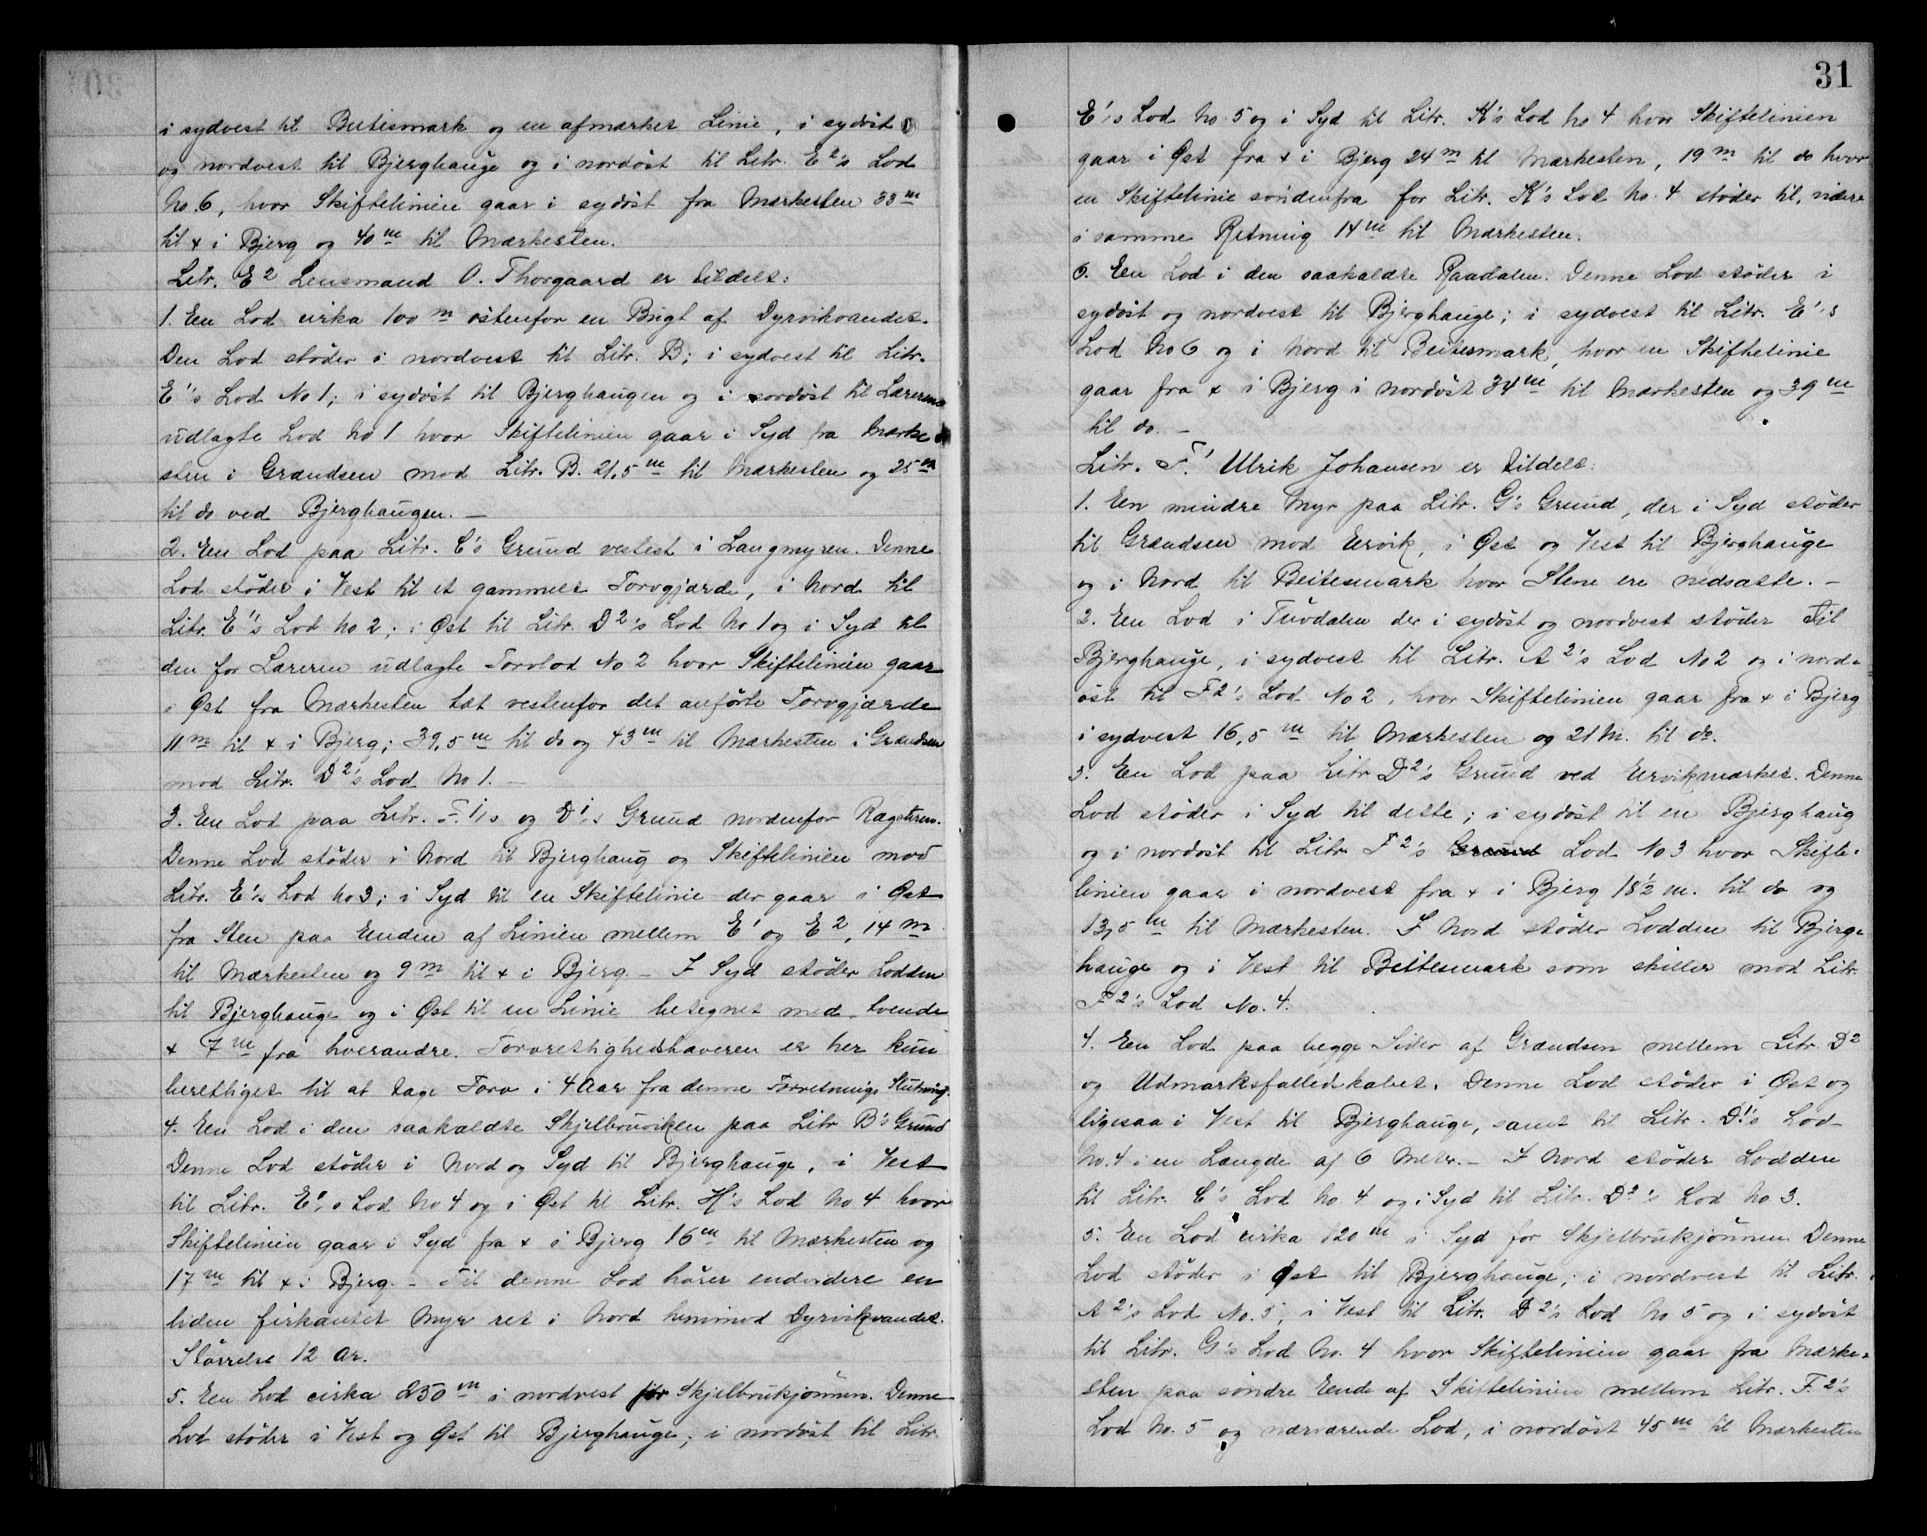 31
i sydvest til Beitesmark og en afmærket Linie, i sydöst
og nordvest til Bjerghauge og i nordöst til Litr. E²'s Lod
No. 6, hvor Skiftelinien gaar i sydöst fra Mærkesten 33 m
til + i Bjerg og 40 m til Mærkesten.
Litr. E² Lensmand O. Thorgaard er tildelt:
1. Een Lod cirka 100 m östenfor en Bugt af Dyrvikvandet.
Den Lod stöder i nordvest til Litr. B; i sydvest til Litr.
E¹'s Lod No 1; i sydöst til Bjerghaugen og i nordöst til Læreren
udlagte Lod No 1 hvor Skiftelinien gaar i Syd fra Mærke
sten i Grændsen mod Litr. B. 21,5 m til Mærkesten og 25 m
til do ved Bjerghaugen. —
2. Een Lod paa Litr. C's Grund vestest i Langmyren. Denne
Lod stöder i Vest til et gammelt Torvgjærde, i Nord til
Litr. E¹'s Lod No 2; i Øst til Litr. D²'s Lod No 1 og i Syd til
den for Læreren udlagte Torvlod No 2 hvor Skiftelinien gaar
i Øst fra Mærkesten tæt vestenfor det anförte Torvgjærde
11 m til + i Bjerg; 39,5 m til do og 43 m til Mærkesten i Grændsen
mod Litr. D²'s Lod No 1. —
3. Een Lod paa Litr. F.¹'s og D¹'s Grund nordenfor
Denne Lod stöder i Nord til Bjerghaug og Skiftelinien mod
Litr. E¹'s Lod No 3; i Syd til en Skiftelinie der gaar i Øst
fra Sten paa Enden af Linien mellem E¹ og E², 14 m
til Mærkesten og 9 m til + i Bjerg. — I Syd stöder Lodden
til Bjerghauge og i Øst til en Linie betegnet med tvende
+ 7 m fra hverandre. Torvrettighedshaveren er her kun
berettiget til at tage Torv i 4 Aar fra denne Forretnings Slutning.
4. Een Lod i den saakaldte Skjelbruvikken paa Litr B's Grund
Denne Lod stöder i Nord og Syd til Bjerghauge, i Vest
til Litr. E¹'s Lod No 4 og i Øst til Litr. H's Lod No 4 hvor
Skiftelinien gaar i Syd fra + i Bjerg 16 m til Mærkesten og
17 m til + i Bjerg. — Til denne Lod hörer endvidere en
liden firkantet Myr ret i Nord henimod Dyrvikvandet.
Störrelse 12 ar.
5. Een Lod cirka 250 m i nordvest for Skjelbrukjönnen. Denne
Lod stöder i Vest og Øst til Bjerghauge; i nordöst til Litr.
E¹'s Lod No 5 og i Syd til Litr. K's Lod No 4 hvor Skiftelinien
gaar i Øst fra + i Bjerg 24 m til Mærkesten, 19 m til do hvor
en Skiftelinie söndenfra for Litr. K's Lod No. 4 stöder til, videre
i samme Retning 14 m til Mærkesten.
6. Een Lod i den saakaldte Raadalen. Denne Lod stöder i
sydöst og nordvest til Bjerghauge; i sydvest til Litr. E¹'s
Lod No 6 og i Nord til Beitesmark, hvor en Skiftelinie
gaar fra + i Bjerg i nordöst 34 m til Mærkesten og 39 m
til do. —
Litr. F.¹ Ulrik Johansen er tildelt:
1. Een mindre Myr paa Litr. G's Grund, der i Syd stöder
til Grændsen mod Ervik, i Øst og Vest til Bjerghauge
og i Nord til Beitesmark hvor Stene ere nedsatte. —
2. Een Lod i Tuvdalen der i sydöst og nordvest stöder til
Bjerghauge, i sydvest til Litr. A²'s Lod No 2 og i nord-
öst til F²'s Lod No 2, hvor Skiftelinien gaar fra + i Bjerg
i sydvest 16,5 m til Mærkesten og 21 M. til do.
3. Een Lod paa Litr D²'s Grund ved Ervikmærket. Denne
Lod stöder i Syd til dette; i sydöst til en Bjerghaug
og i nordöst til Litr F²'s Grund Lod No 3 hvor Skifte-
linien gaar i nordvest fra + i Bjerg 18½ m. til do og
13,5 m til Mærkesten. I Nord stöder Lodden til Bjerg-
hauge og i Vest til Beitesmark som skiller mod Litr.
F²'s Lod No. 4.
4. Een Lod paa begge Sider af Grændsen mellem Litr. D²
og Udmarksfælledskabet. Denne Lod stöder i Øst og
ligesaa i Vest til Bjerghauge, samt til Litr. D¹'s Lod
No. 4 i en Længde af 6 Meter. — I Nord stöder Lodden
til Litr. C's Lod No. 4 og i Syd til Litr. D²'s Lod No 3.
5. Een Lod cirka 120 m i Syd for Skjelbrukjönnen. Denne
Lod stöder i Øst til Bjerghauge; i nordvest til Litr.
A²'s Lod No. 5; i Vest til Litr. D²'s Lod No 5 og i sydöst
til Litr. G's Lod No. 4 hvor Skiftelinien gaar fra Mærke-
sten paa söndre Ende af Skiftelinien mellem Litr. F.²'s
Lod No. 5 og nærværende Lod, i nordöst 45 m til Mærkesten